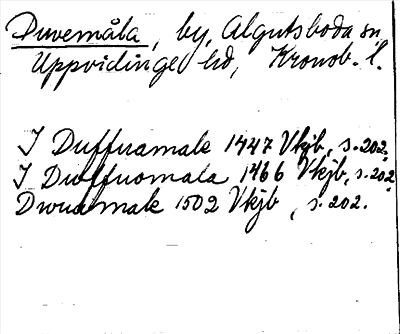 Duvemåla, by, Algutsboda sn,
Uppvidinge hd, Kronob. l.
I Duffuamale 1447 Vkjb, s. 202.
I Duffuomala 1466 Vkjb, s. 202.
Dwuamale 1502 Vkjb, s. 202.